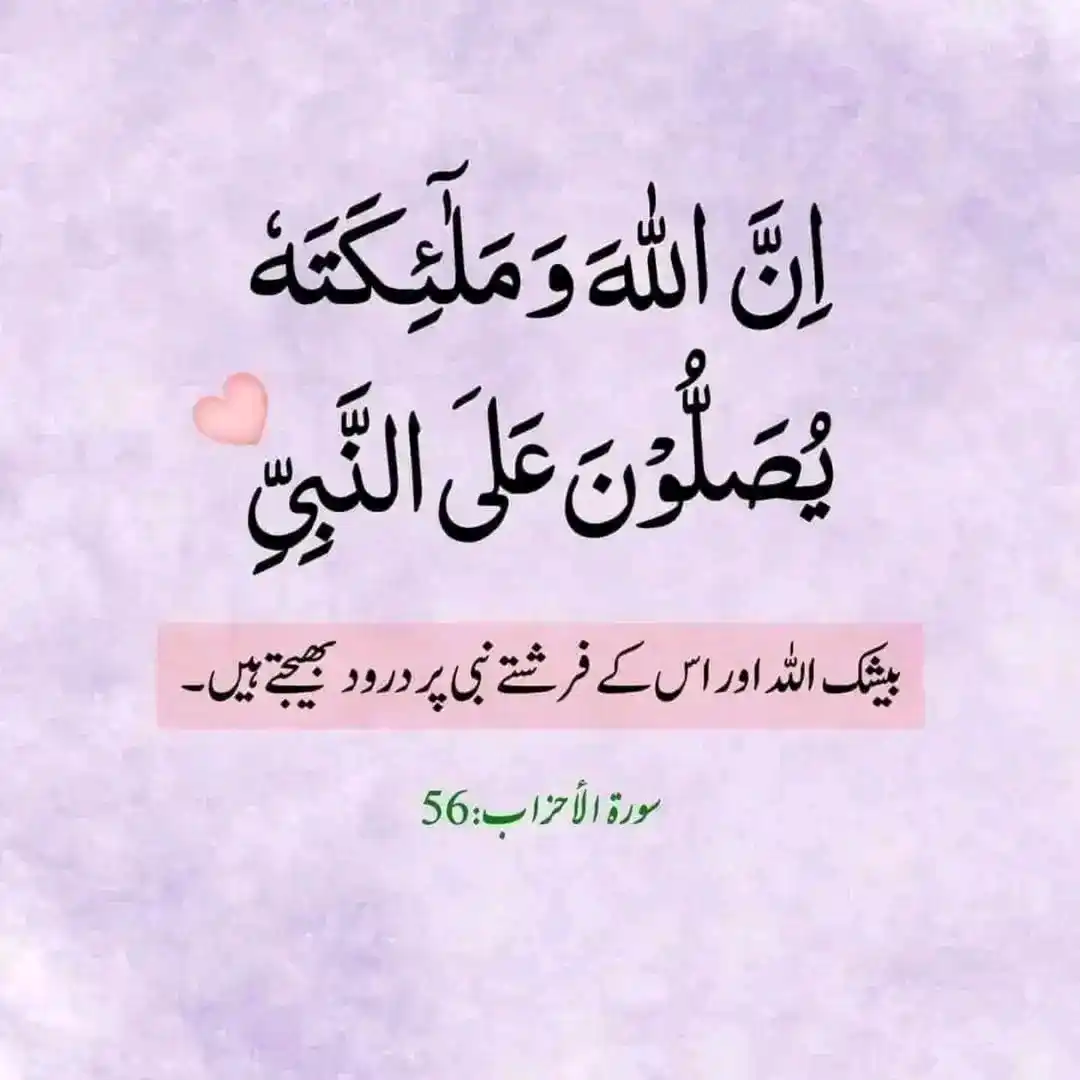 اِنَّ اللّٰهَ وَ مَلٰٓئِكَتَهٗ
يُصَلُّوْنَ عَلَى النَّبِيِّ
بیشک اللہ اور اس کے فرشتے نبی پر درود بھیجتے ہیں۔
سورة الأحزاب:56